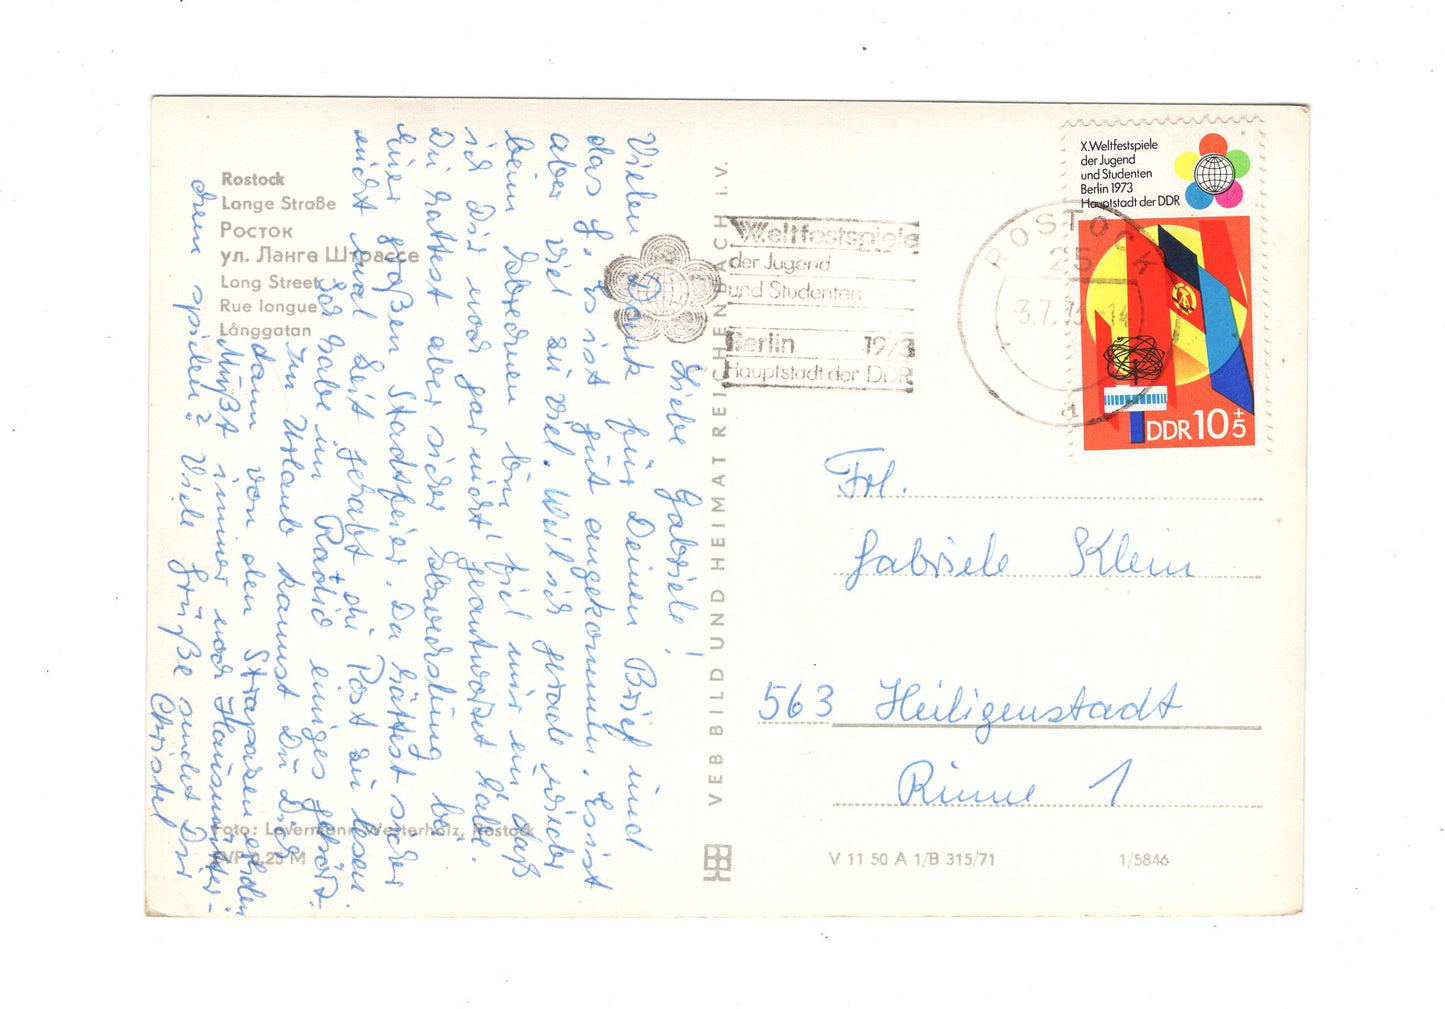 Rostock
Lange Straße
Росток
ул. Ланге Штрассе
Long Street
Rue longue
Långgatan
Liebe Gabriele!
Vielen Dank für Deinen Brief und
das G. Es ist gut angekommen. Es ist
aber viel zu viel. Weil ich gerade wieder
beim Schreiben bin fiel mir ein, daß
ich Dir noch gar nicht geantwortet habe.
Du hattest aber sicher Abwechslung bei
Eurer großen Stadtfeier. Da hättest sicher
nicht mal Zeit gehabt die Post zu lesen.
Ich habe im Radio einiges gehört.
Im Urlaub kannst Du Dich
dann von den Strapazen erholen.
Mußt immer noch Hausmütter-
chen spielen? Viele Grüße sendet Dir
Christel
Foto: Levermann-Westerholz, Rostock
EVP 0,25 M
VEB BILD UND HEIMAT REICHENBACH I.V.
Weltfestspiele
der Jugend
und Studenten
Berlin 1973
Hauptstadt der DDR
ROSTOCK
25
-3.7.73-14
a
X.Weltfestspiele
der Jugend
und Studenten
Berlin 1973
Hauptstadt der DDR
DDR 10+5
Frl.
Gabriele Klein
563 Heiligenstadt
Rinne 1
V 11 50 A 1/B 315/71
1/5846